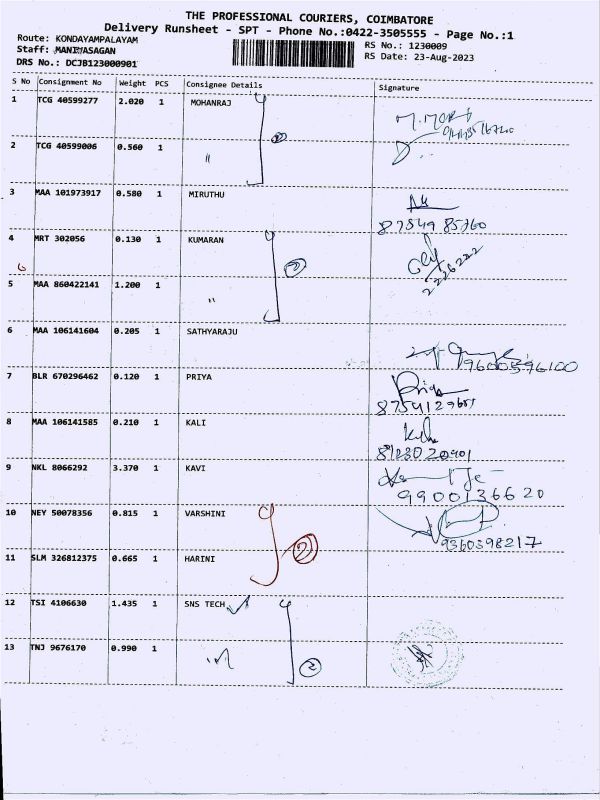 THE PROFESSIONAL COURIERS, COIMBATORE
Delivery Runsheet - SPT - Phone No.:0422-3505555 - Page No.:1
Route: KONDAYAMPALAYAM
RS No.: 1230009
Staff: MANIVASAGAN
RS Date: 23-Aug-2023
DRS No.: DCJB123000901
S No Consignment No Weight PCS Consignee Details Signature
1 TCG 40599277 2.020 1 MOHANRAJ
2 TCG 40599006 0.560 1 "
2
3 MAA 101973917 0.580 1 MIRUTHU
87549 85760
4 MRT 302056 0.130 1 KUMARAN
2226222
6
2
5 MAA 860422141 1.200 1 "
6 MAA 106141604 0.205 1 SATHYARAJU
9600596100
7 BLR 670296462 0.120 1 PRIYA
Priya
8 MAA 106141585 0.210 1 KALI
8123020901
9 NKL 8066292 3.370 1 KAVI
9900136620
10 NEY 50078356 0.815 1 VARSHINI
9360398217
2
11 SLM 326812375 0.665 1 HARINI
12 TSI 4106630 1.435 1 SNS TECH
13 TNJ 9676170 0.990 1
2